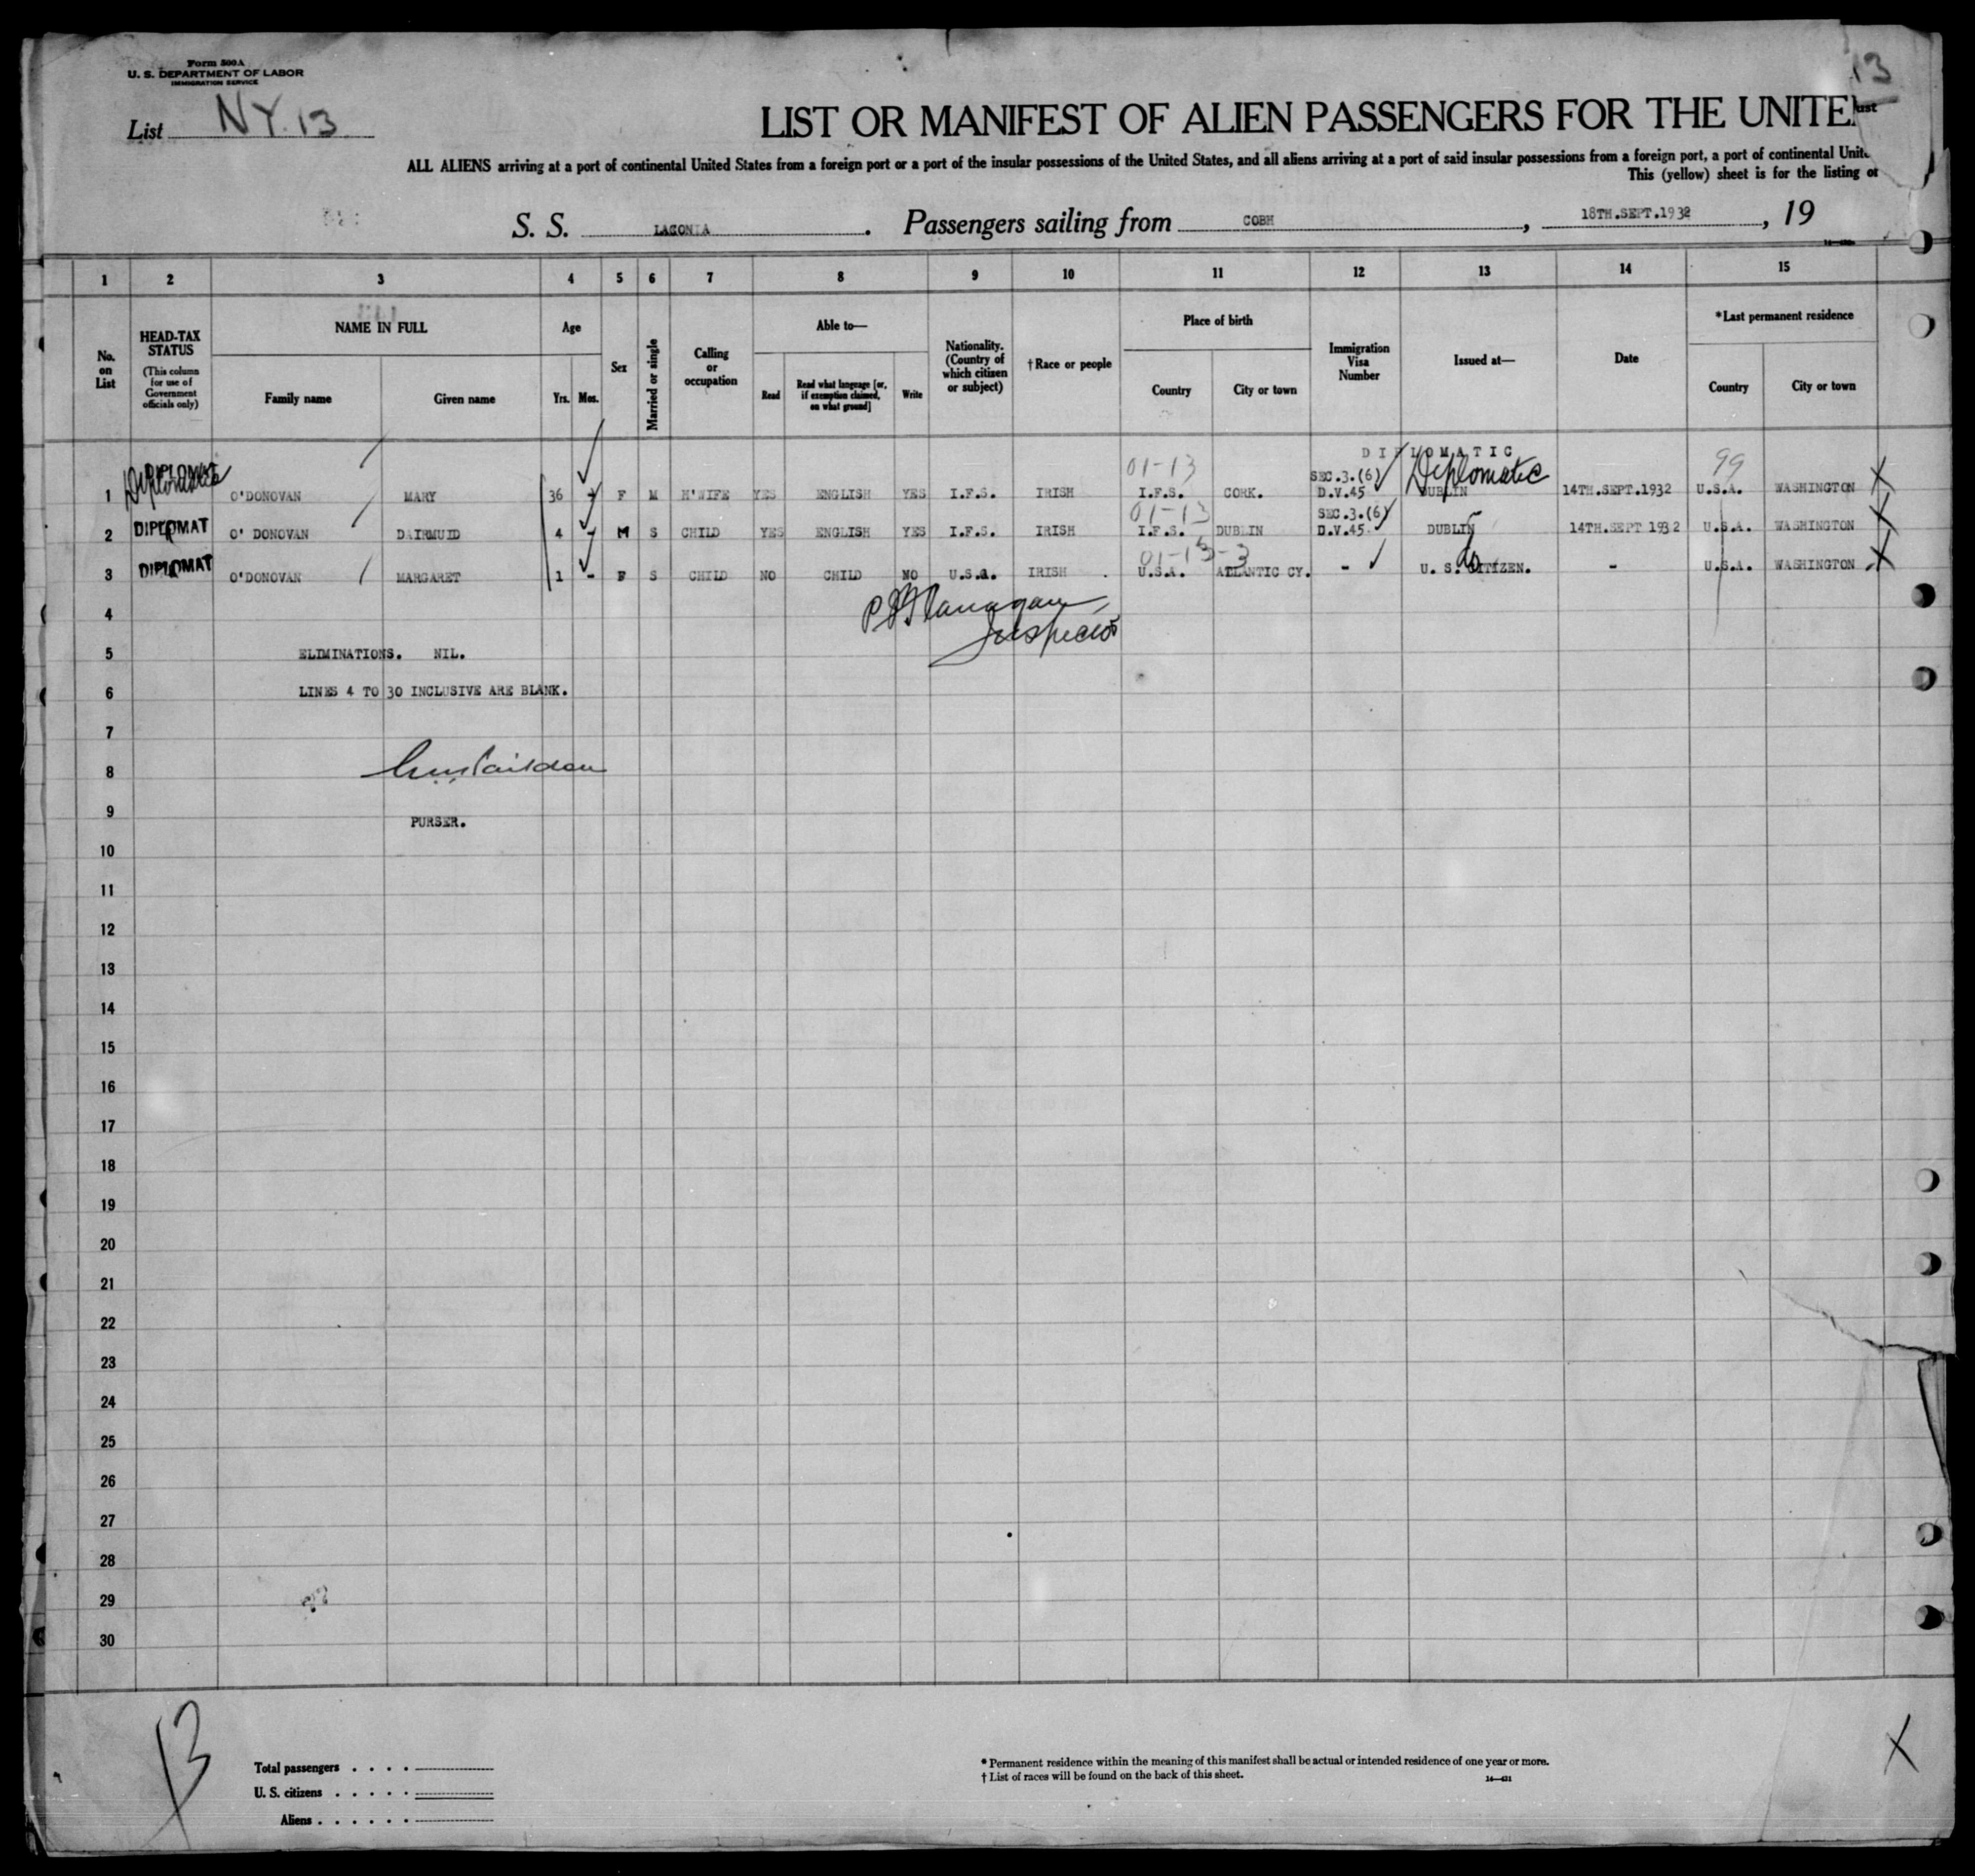 Form 500A
U. S. DEPARTMENT OF LABOR
IMMIGRATION SERVICE
13
List NY. 13
LIST OR MANIFEST OF ALIEN PASSENGERS FOR THE UNITE
ALL ALIENS arriving at a port of continental United States from a foreign port or a port of the insular possessions of the United States, and all aliens arriving at a port of said insular possessions from a foreign port, a port of continental Unite
This (yellow) sheet is for the listing of
S. S. LACONIA. Passengers sailing from COBH, 18TH.SEPT.1932, 19
1 2 3 4 5 6 7 8 9 10 11 12 13 14 15
No. on List
HEAD-TAX STATUS
(This column for use of Government officials only)
NAME IN FULL
Family name Given name
Age
Yrs. Mos.
Sex
Married or single
Calling or occupation
Able to—
Read Read what language [or, if exemption claimed, on what ground] Write
Nationality. (Country of which citizen or subject)
†Race or people
Place of birth
Country City or town
Immigration Visa Number
Issued at—
Date
*Last permanent residence
Country City or town
DIPLOMATIC
01-13 SEC.3.(6) Diplomatic 99
1 DIPLOMAT Diplomatic O'DONOVAN MARY 36 - F M H'WIFE YES ENGLISH YES I.F.S. IRISH I.F.S. CORK. D.V.45 DUBLIN 14TH.SEPT.1932 U.S.A. WASHINGTON X
01-13 SEC.3.(6)
2 DIPLOMAT O' DONOVAN DAIRMUID 4 - M S CHILD YES ENGLISH YES I.F.S. IRISH I.F.S. DUBLIN D.V.45. DUBLIN 14TH.SEPT 1932 U.S.A. WASHINGTON X
01-13-3
3 DIPLOMAT O'DONOVAN MARGARET 1 - F S CHILD NO CHILD NO U.S.a. IRISH . U.S.A. ATLANTIC CY. - U. S. CITIZEN. - U.S.A. WASHINGTON. X
4
Inspector
5 ELIMINATIONS. NIL.
6 LINES 4 TO 30 INCLUSIVE ARE BLANK.
7
8
9 PURSER.
10
11
12
13
14
15
16
17
18
19
20
21
22
23
24
25
26
27
28
29
30
13
X
Total passengers . . . .
U. S. citizens . . . . .
Aliens . . . . . .
* Permanent residence within the meaning of this manifest shall be actual or intended residence of one year or more.
† List of races will be found on the back of this sheet. 14—431